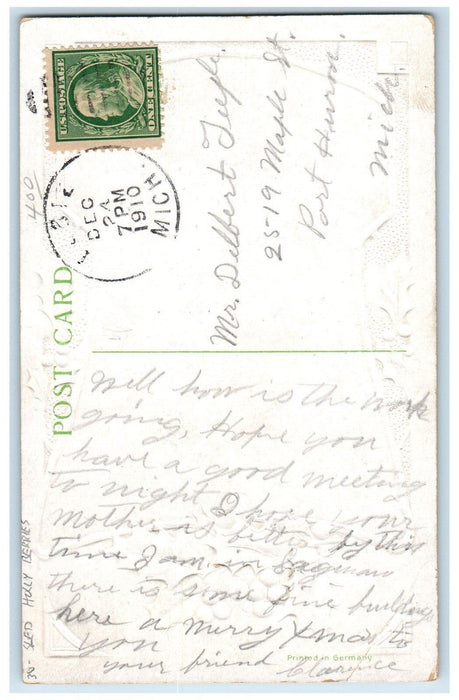 U.S. POSTAGE
ONE CENT
DEC
24
7 PM
1910
MICH
400
POST CARD
Mr. Delbert Teeple.
2519 Maple St.
Port Huron,
Mich
Well how is the work
going, Hope you
have a good meeting
to night I hope your
Mother is better by this
time I am in Saginaw
there is some fine buildings
here a merry Xmas to
you
your friend Clarence
Printed in Germany
SLED HOLLY BERRIES